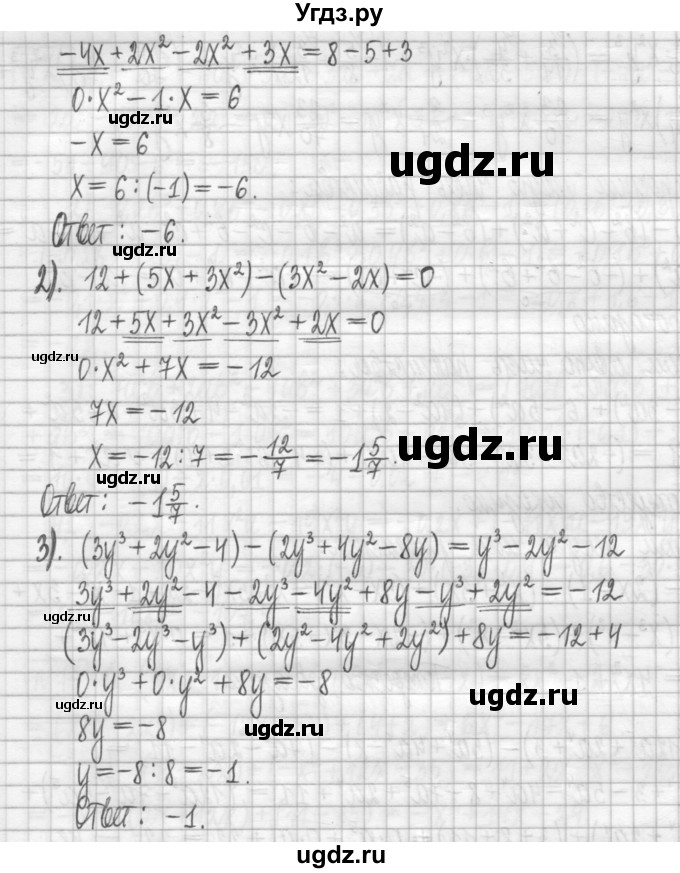 Угдз.ру
-4x + 2x² - 2x² + 3x = 8 - 5 + 3
0·x² - 1·x = 6
ugdz.ru
-x = 6
ugdz.ru
x = 6 : (-1) = -6.
Ответ: -6.
ugdz.ru
2). 12 + (5x + 3x²) - (3x² - 2x) = 0
12 + 5x + 3x² - 3x² + 2x = 0
ugdz.ru
0·x² + 7x = -12
7x = -12
ugdz.ru
x = -12 : 7 = -12/7 = -1 5/7.
ugdz.ru
Ответ: -1 5/7.
3). (3y³ + 2y² - 4) - (2y³ + 4y² - 8y) = y³ - 2y² - 12
3y³ + 2y² - 4 - 2y³ - 4y² + 8y - y³ + 2y² = -12
ugdz.ru
(3y³ - 2y³ - y³) + (2y² - 4y² + 2y²) + 8y = -12 + 4
0·y³ + 0·y² + 8y = -8
ugdz.ru
ugdz.ru
8y = -8
ugdz.ru
y = -8 : 8 = -1.
Ответ: -1.
ugdz.ru
ugdz.ru